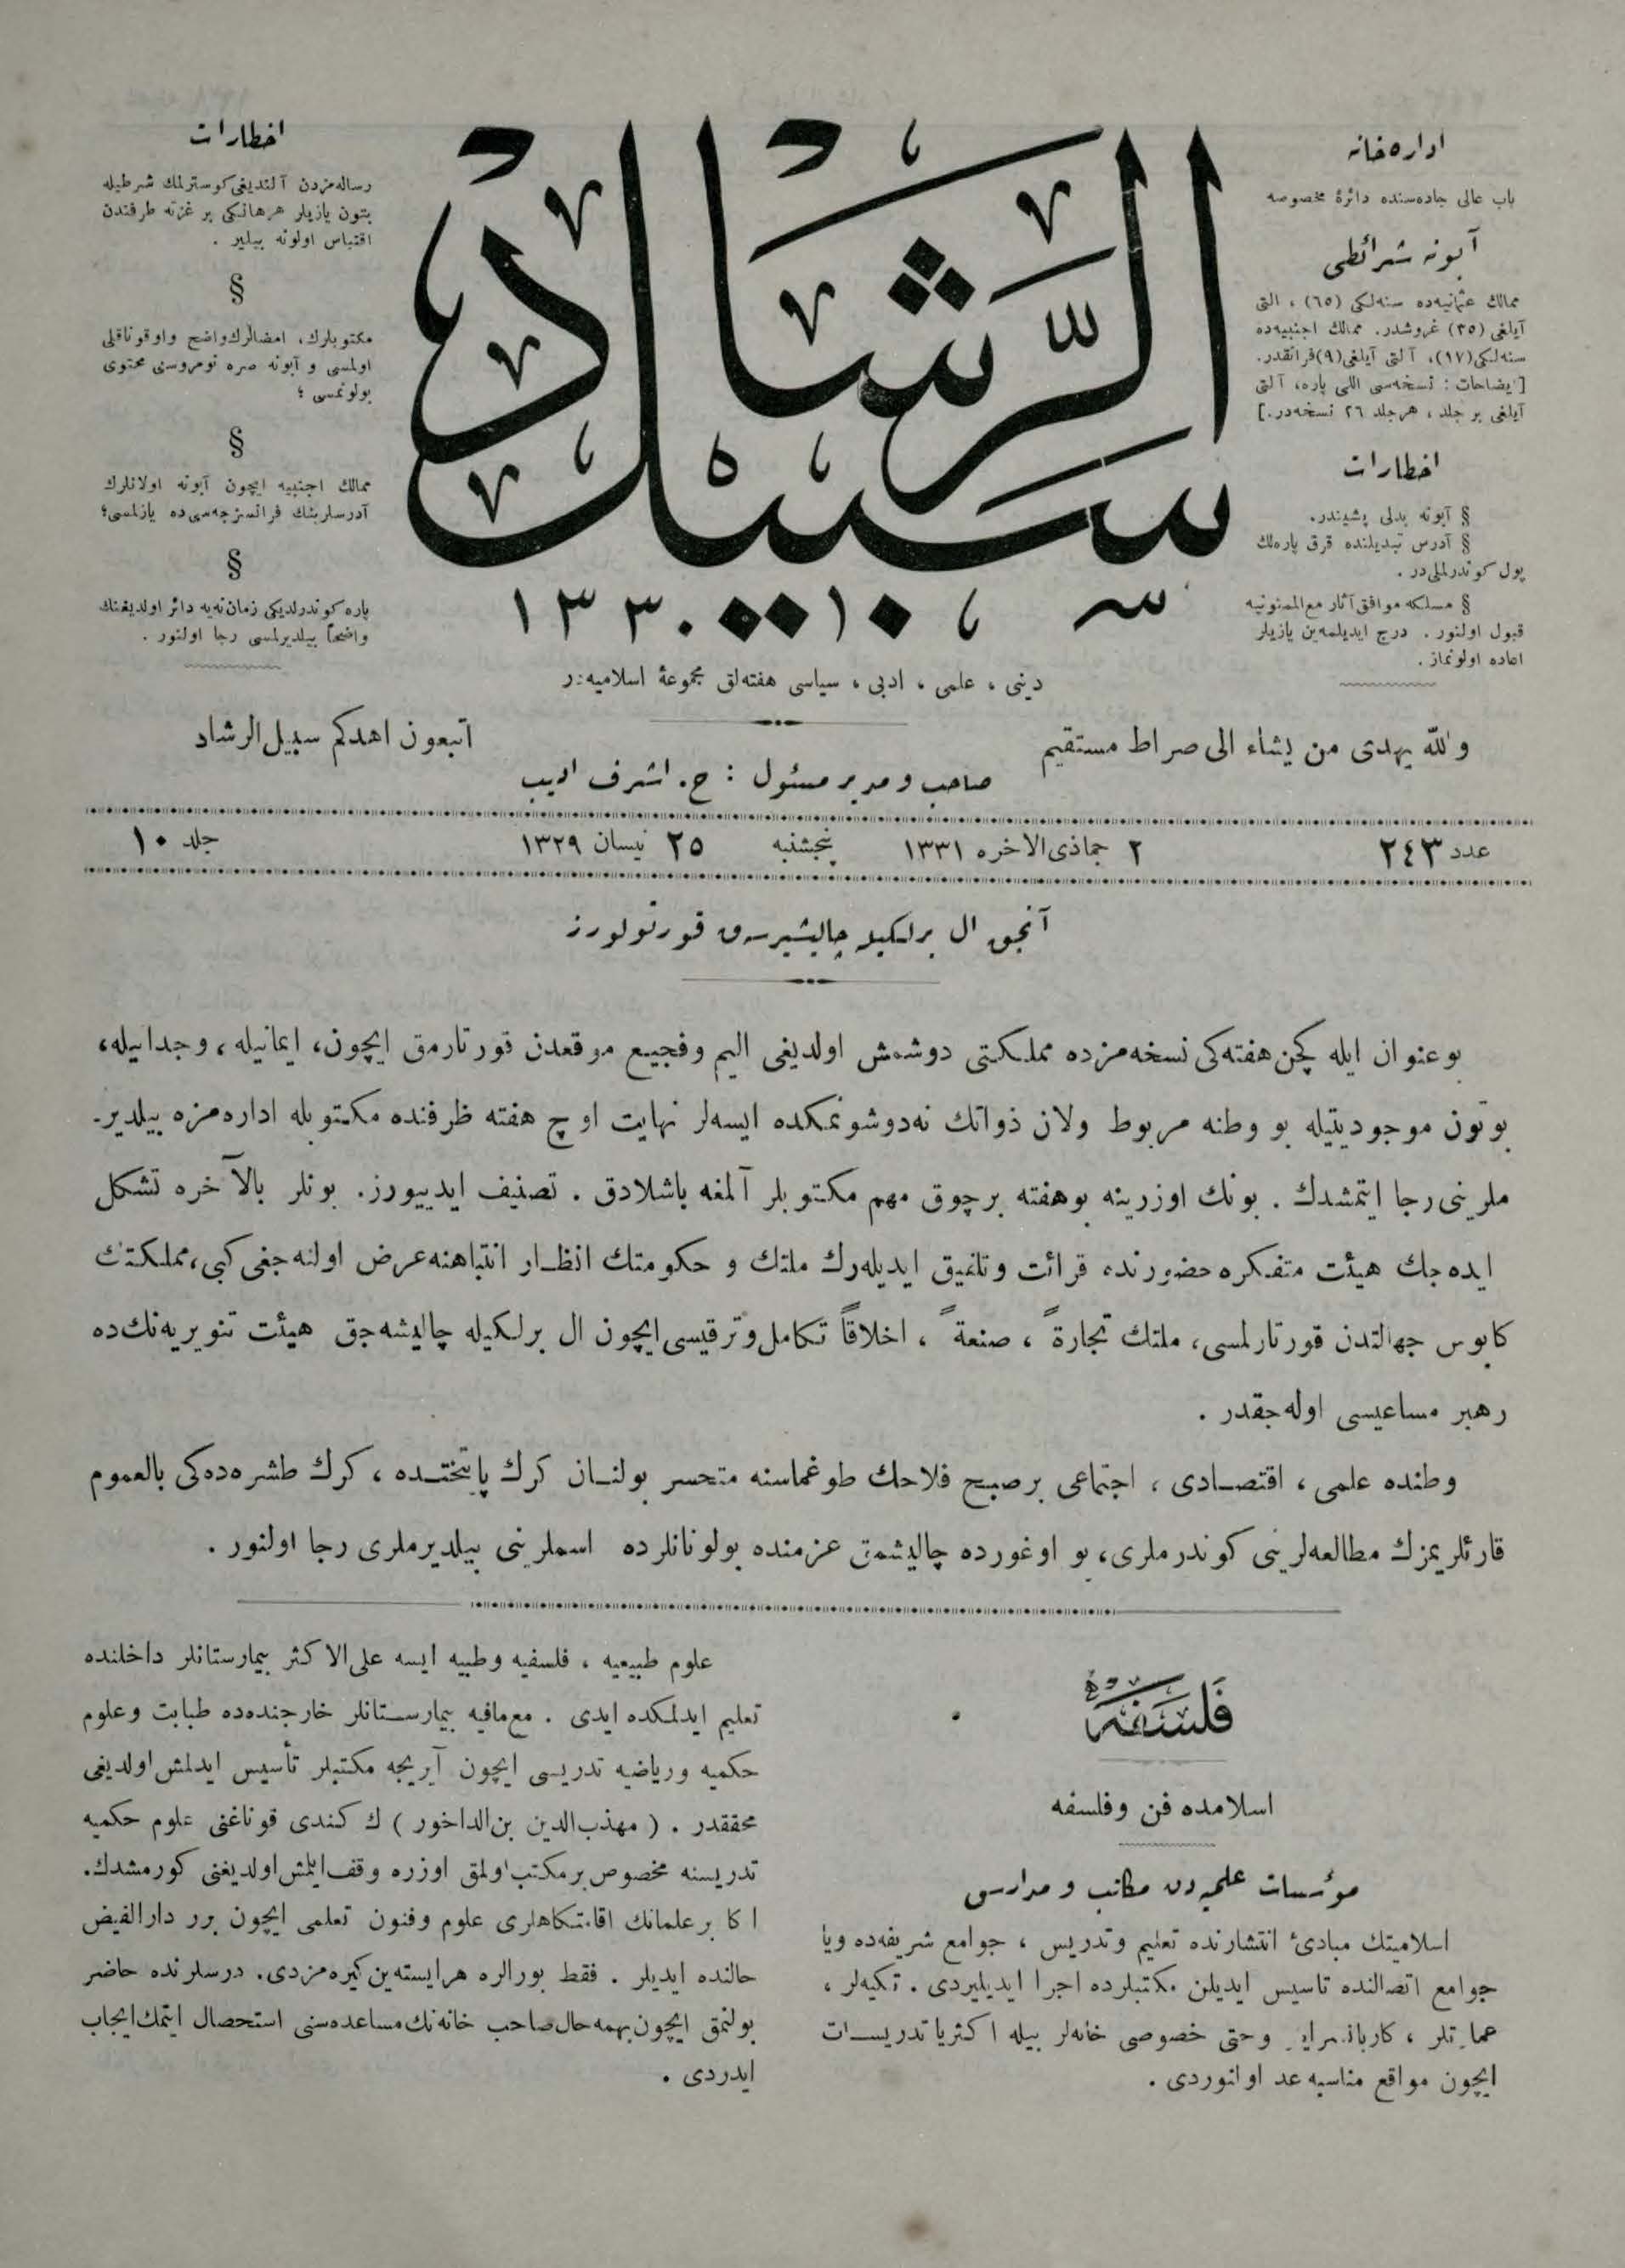 اداره‌خانه
باب عالی جاده‌سنده دائرۀ مخصوصه
آبونه شرائطی
ممالك عثمانیه‌ده سنه‌لكی (٦٥) ، التی
آیلغی (٣٥) غروشدر. ممالك اجنبیه‌ده
سنه‌لكی(١٧)، آلتی آیلغی(٩)فرانقدر.
[ایضاحات : نسخه‌سی اللی پاره، آلتی
آیلغی بر جلد ، هر جلد ٢٦ نسخه‌در.]
اخطارات
§ آبونه بدلی پشیندر.
§ آدرس تبدیلنده قرق پاره‌لك
پول كوندرلملی‌در .
§ مسلكه موافق آثار مع‌الممنونیه
قبول اولنور . درج ایدیلمه‌ین یازیلر
اعاده اولونماز .
سبیل الرشاد
سنه ١٣٣٠
اخطارات
رساله‌مزدن آلندیغی كوسترلمك شرطیله
بتون یازیلر هرهانكی بر غزته طرفندن
اقتباس اولونه بیلیر .
§
مكتوبلرك، امضالرك واضح و اوقوناقلی
اولمسی و آبونه صره نومروسنی محتوی
بولونمسی ؛
§
ممالك اجنبیه ایچون آبونه اولانلرك
آدرسلرینك فرانسزجه‌سی‌ده یازلمسی؛
§
پاره كوندرلدیكی زمان نه‌یه دائر اولدیغنك
واضحاً بیلدیرلمسی رجا اولنور .
دینی ، علمی ، ادبی ، سیاسی هفته‌لق مجموعۀ اسلامیه‌در
والله یهدی من یشاء الی صراط مستقیم
اتبعون اهدكم سبیل الرشاد
صاحب و مدیر مسئول : ح. اشرف ادیب
عدد ٢٤٣
٢ جماذی‌الاخره ١٣٣١
پنجشنبه
٢٥ نیسان ١٣٢٩
جلد ١٠
آنجق ال برلكیله چالیشیرسه‌ق قورتولورز
بو عنوان ایله كچن هفته‌كی نسخه‌مزده مملكتی دوشمش اولدیغی الیم و فجیع موقعدن قورتارمق ایچون، ایمانیله ، وجدانیله،
بوتون موجودیتیله بو وطنه مربوط ولان ذواتك نه‌دوشونمكده ایسه‌لر نهایت اوچ هفته ظرفنده مكتوبله اداره‌مزه بیلدیر-
ملرینی رجا ایتمشدك . بونك اوزرینه بوهفته برچوق مهم مكتوبلر آلمغه باشلادق . تصنیف ایدییورز. بونلر بالآخره تشكل
ایده‌جك هیئت متفكره حضورنده قرائت و تلفیق ایدیله‌رك ملتك و حكومتك انظار انتباهنه عرض اولنه‌جغی كبی، مملكتك
كابوس جهالتدن قورتارلمسی، ملتك تجارةً ، صنعةً ، اخلاقاً تكامل و ترقیسی ایچون ال برلكیله چالیشه‌جق هیئت تنویریه‌نك‌ده
رهبر مساعیسی اوله‌جقدر .
وطنده علمی ، اقتصادی ، اجتماعی برصبح فلاحك طوغماسنه متحسر بولنان كرك پایتختده ، كرك طشره‌ده‌كی بالعموم
قارئلریمزك مطالعه‌لرینی كوندرملری، بو اوغورده چالیشمق عزمنده بولونانلرده اسملرینی بیلدیرملری رجا اولنور .
فلسفه
اسلامده فن و فلسفه
مؤسسات علمیه‌دن مكاتب و مدارس
اسلامیتك مبادئ انتشارنده تعلیم و تدریس ، جوامع شریفه‌ده ویا
جوامع اتصالنده تاسیس ایدیلن مكتبلرده اجرا ایدیلیردی . تكیه‌لر ،
عمارتلر ، كاربانسرایلر وحتی خصوصی خانه‌لر بیله اكثریا تدریسات
ایچون مواقع مناسبه عد اولنوردی .
علوم طبیعیه ، فلسفیه و طبیه ایسه علی‌الاكثر بیمارستانلر داخلنده
تعلیم ایدلمكده ایدی . مع‌مافیه بیمارستانلر خارجنده‌ده طبابت و علوم
حكمیه و ریاضیه تدریسی ایچون آیریجه مكتبلر تأسیس ایدلمش اولدیغی
محققدر . ( مهذب‌الدین بن‌الداخور ) ك كندی قوناغنی علوم حكمیه
تدریسنه مخصوص برمكتب اولمق اوزره وقف ایلمش اولدیغنی كورمشدك.
اكابر علمانك اقامتكاهلری علوم و فنون تعلمی ایچون برر دارالفیض
حالنده ایدیلر . فقط بورالره هرایسته‌ین كیره‌مزدی. درسلرنده حاضر
بولنمق ایچون بهمه حال صاحب خانه‌نك مساعده‌سنی استحصال ایتمك ایجاب
ایدردی .